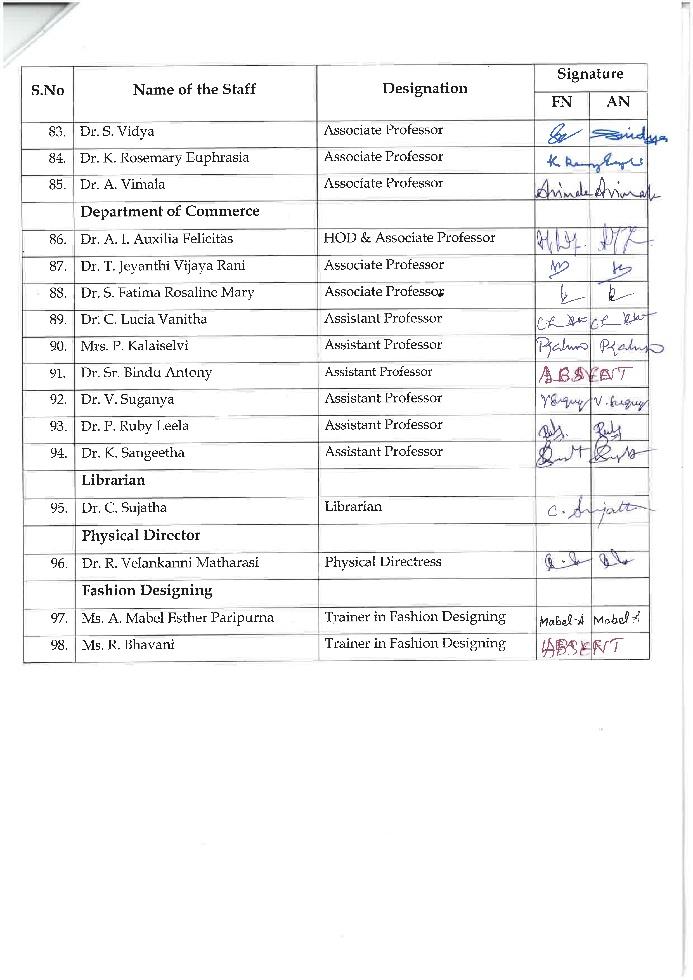 S.No Name of the Staff Designation Signature
FN AN
83. Dr. S. Vidya Associate Professor
84. Dr. K. Rosemary Euphrasia Associate Professor
85. Dr. A. Vimala Associate Professor
Department of Commerce
86. Dr. A. I. Auxilia Felicitas HOD & Associate Professor
87. Dr. T. Jeyanthi Vijaya Rani Associate Professor
88. Dr. S. Fatima Rosaline Mary Associate Professor
89. Dr. C. Lucia Vanitha Assistant Professor
90. Mrs. P. Kalaiselvi Assistant Professor
91. Dr. Sr. Bindu Antony Assistant Professor ABSENT
92. Dr. V. Suganya Assistant Professor
93. Dr. P. Ruby Leela Assistant Professor
94. Dr. K. Sangeetha Assistant Professor
Librarian
95. Dr. C. Sujatha Librarian
Physical Director
96. Dr. R. Velankanni Matharasi Physical Directress
Fashion Designing
97. Ms. A. Mabel Esther Paripurna Trainer in Fashion Designing Mabel-A Mabel-A
98. Ms. R. Bhavani Trainer in Fashion Designing ABSENT